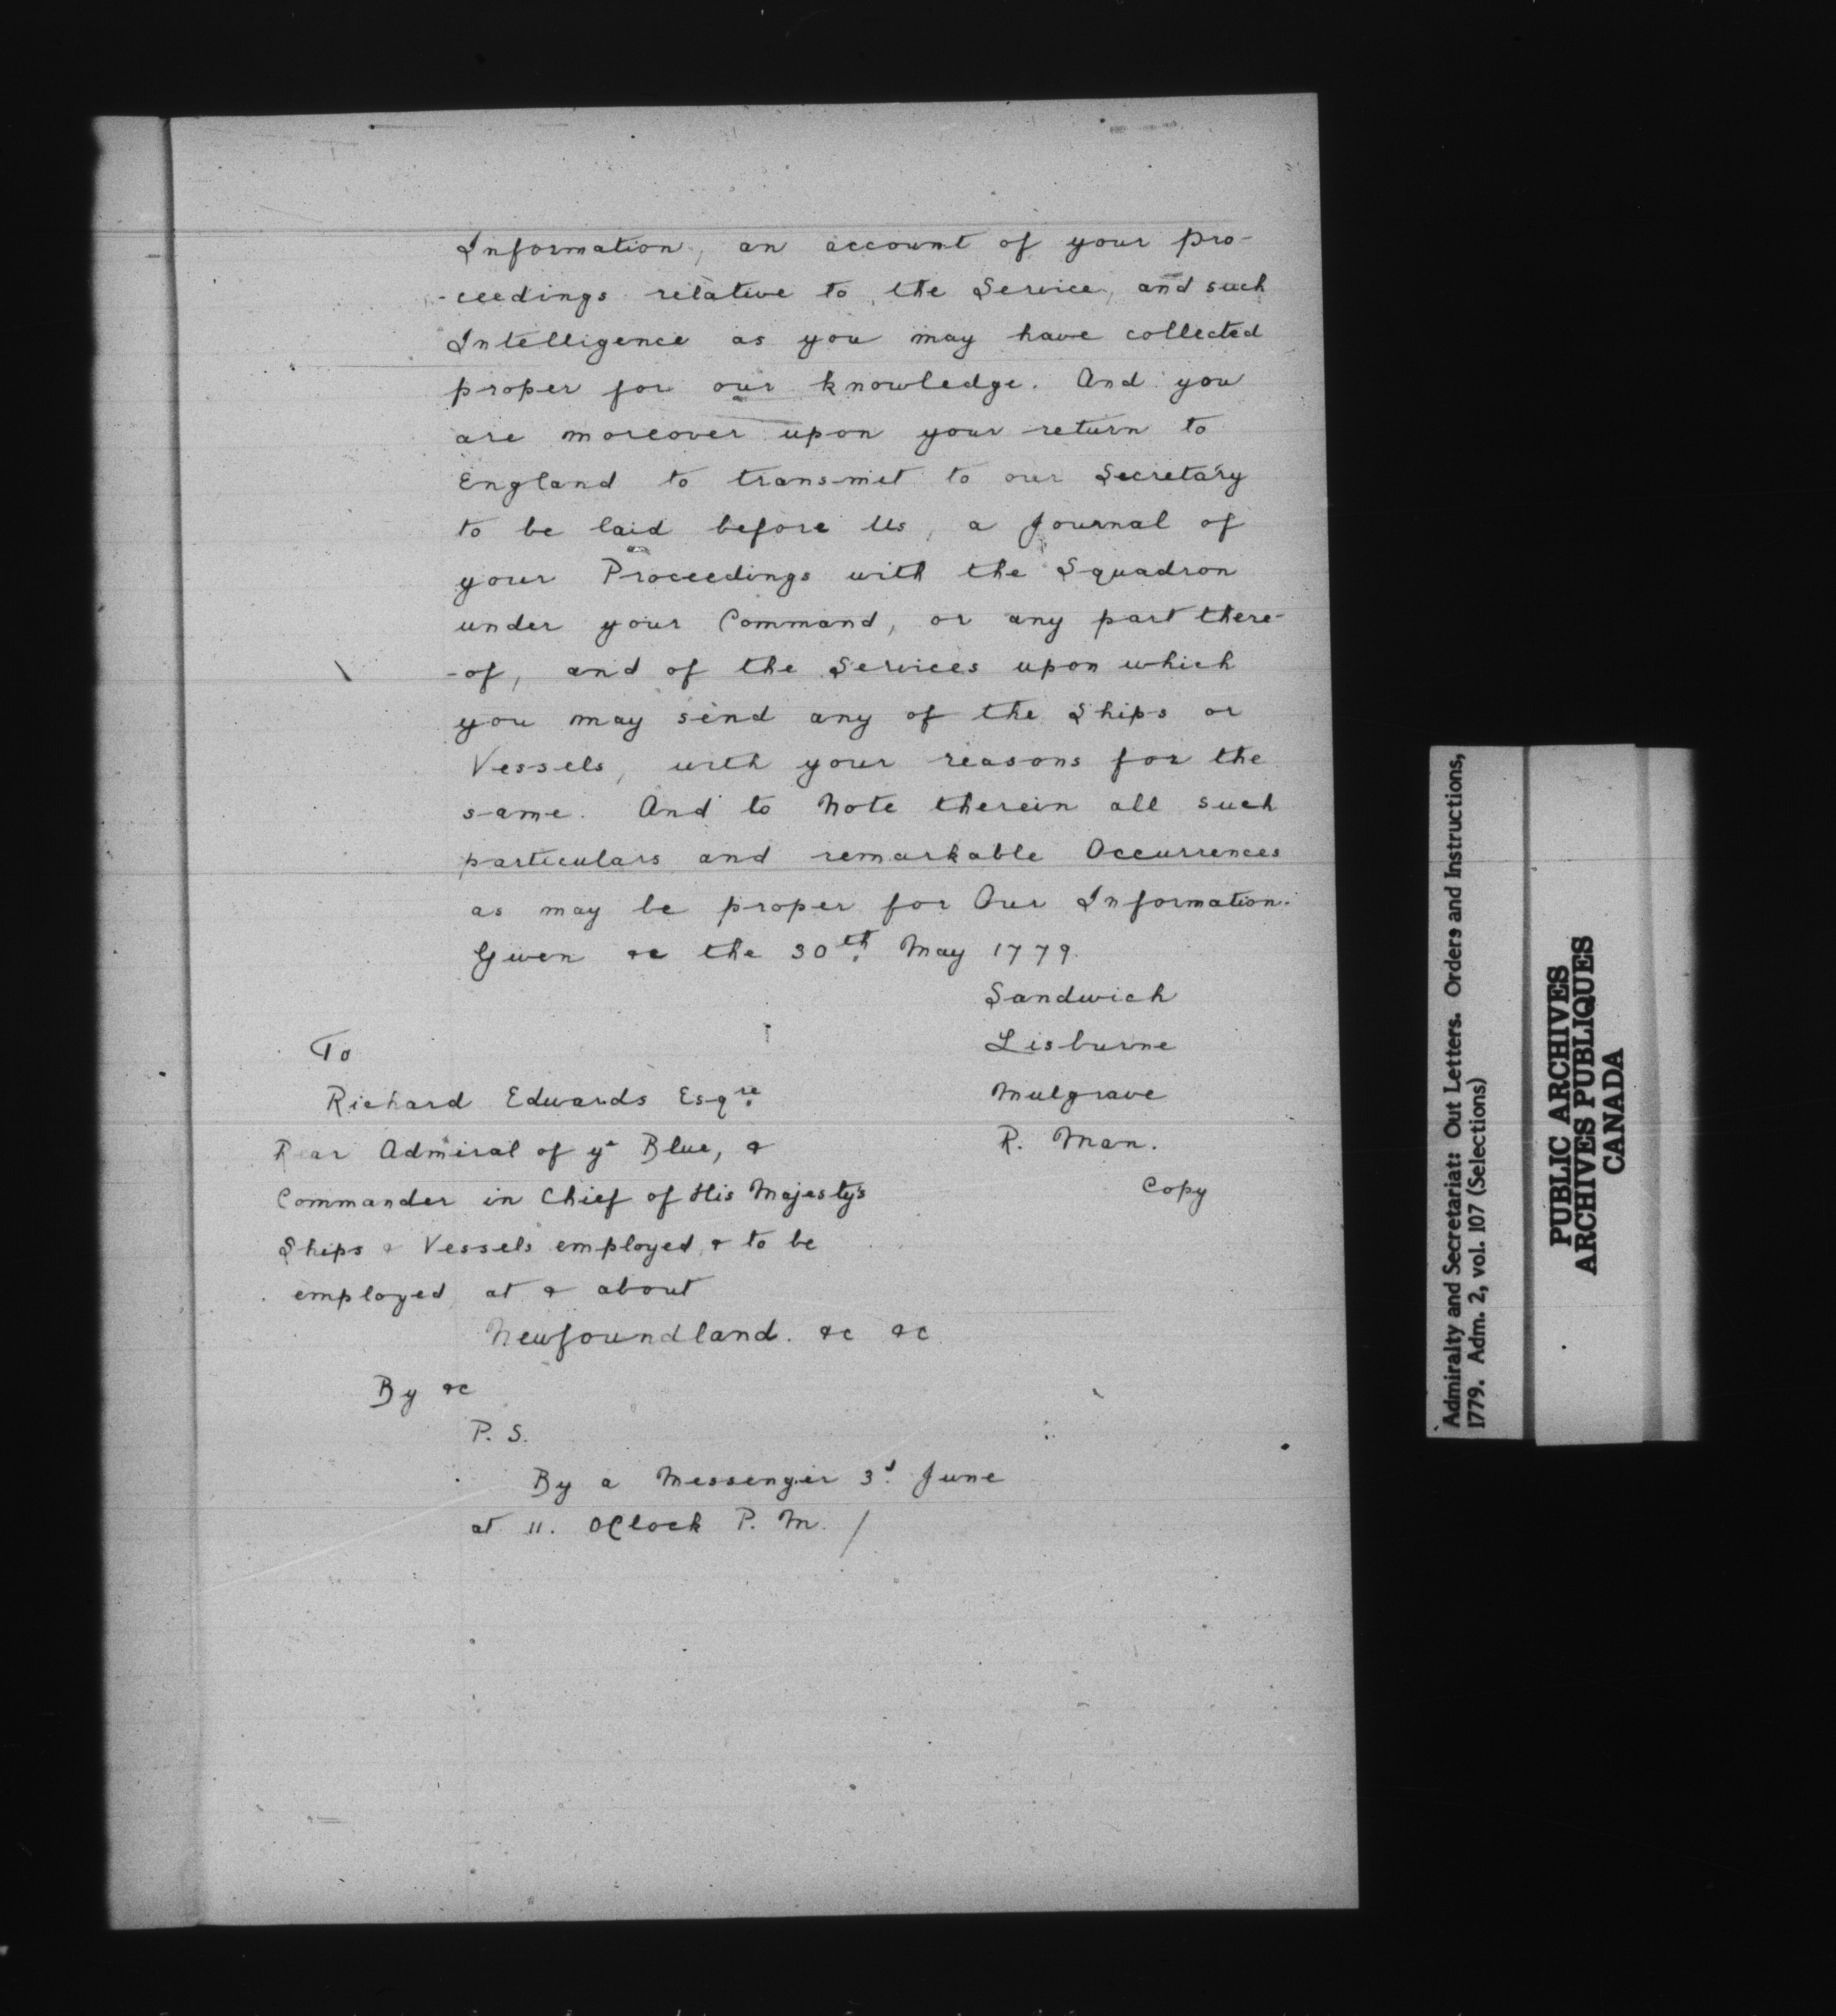 Information, an account of your pro-
-ceedings relative to the Service, and such
Intelligence as you may have collected
proper for our knowledge. And you
are moreover upon your return to
England to transmit to our Secretary
to be laid before Us, a Journal of
your Proceedings with the Squadron
under your Command, or any part there-
-of, and of the Services upon which
you may send any of the Ships or
Vessels, with your reasons for the
same. And to Note therein all such
particulars and remarkable Occurrences
as may be proper for Our Information.
Given &c the 30th May 1779.
Sandwich
Lisburne
Mulgrave
R. Man.
Copy
To
Richard Edwards Esqre
Rear Admiral of ye Blue, &
Commander in Chief of His Majesty's
Ships & Vessels employed, & to be
employed at & about
Newfoundland. &c &c
By &c
P. S.
By a Messenger 3d June
at 11. OClock P. M. /
Admiralty and Secretariat: Out Letters. Orders and Instructions,
1779. Adm. 2, vol. 107 (Selections)
PUBLIC ARCHIVES
ARCHIVES PUBLIQUES
CANADA